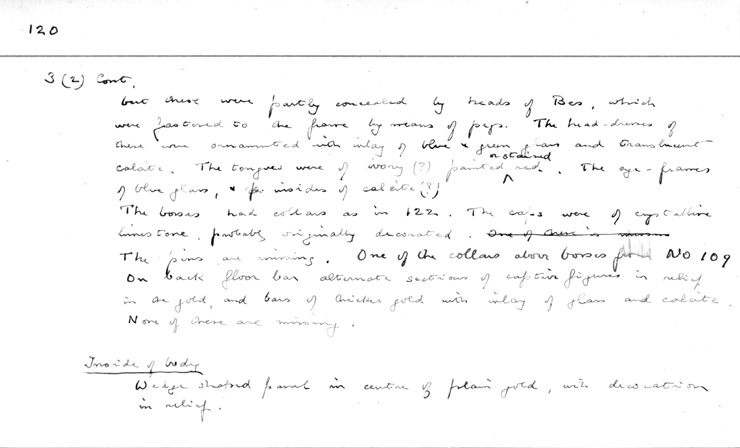 120
3 (2) Cont.
but these were partly concealed by heads of Bes, which
were fastened to the frame by means of pegs. The head-dresses of
these were ornamented with inlay of blue & green glass and translucent
calcite. The tongues were of ivory (?) painted or stained red. The eye-frames
of blue glass, & insides of calcite (?)
The bosses had collars as in 122. The caps were of crystalline
limestone, probably originally decorated. One of these is missing
The pins are missing. One of the collars above bosses from No 109
On back floor bar alternate sections of captive figures in relief
in the gold, and bars of thicker gold with inlay of glass and calcite.
None of these are missing.
Inside of body
Wedge shaped panel in centre of plain gold, with decoration
in relief.